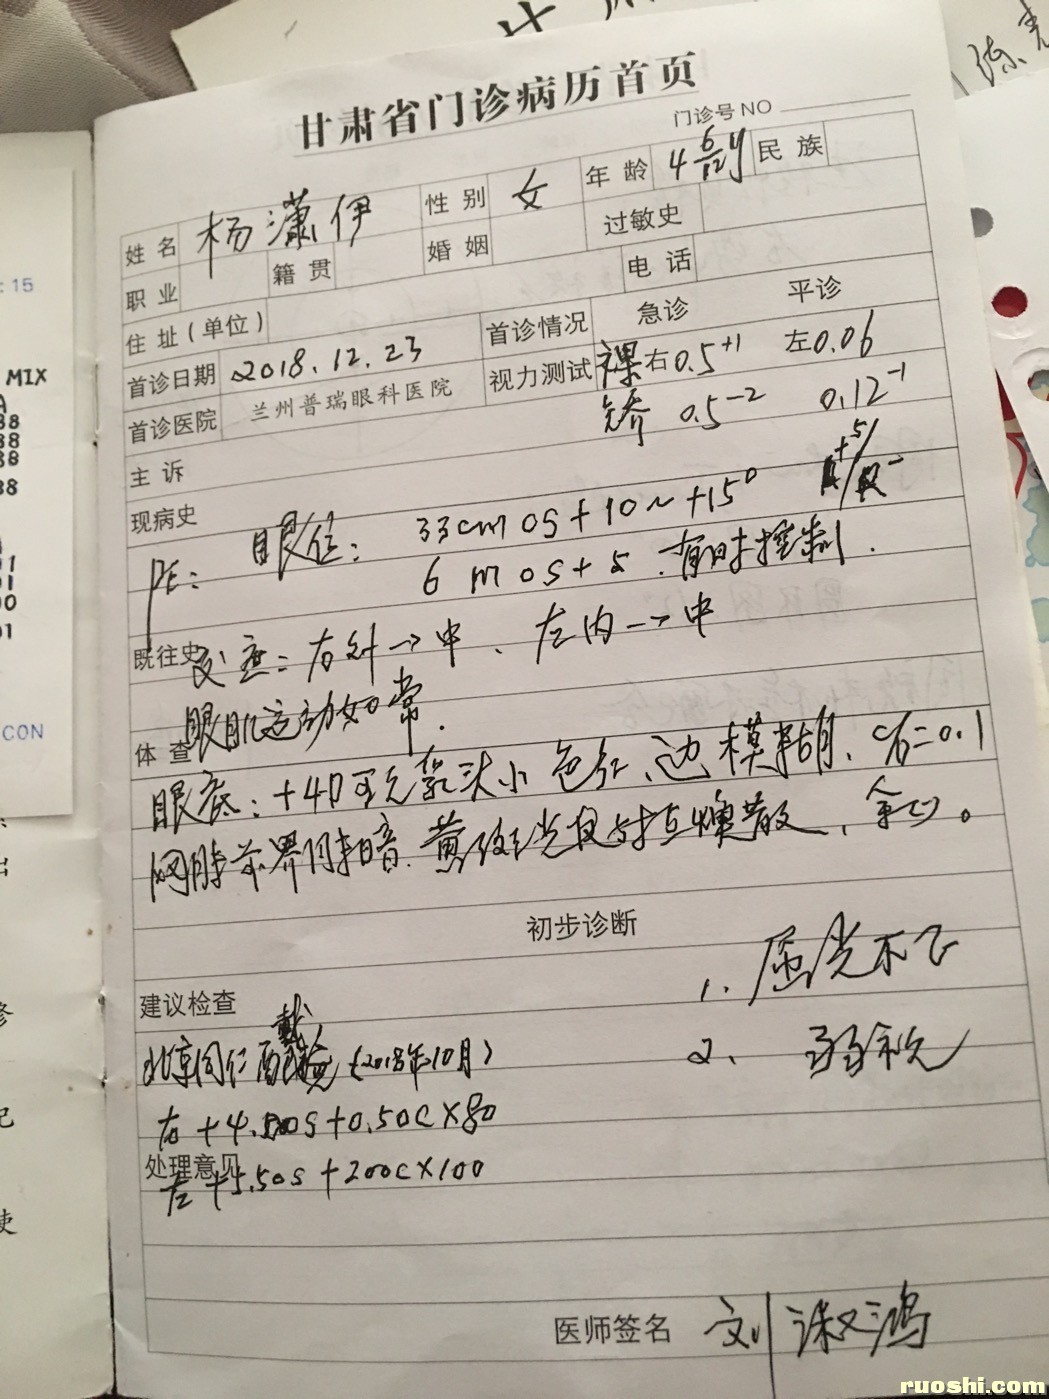 陈
甘肃省门诊病历首页
门诊号 NO
姓名 杨潇伊 性别 女 年龄 4 6/12岁 民族
职业 籍贯 婚姻 过敏史
住址(单位) 电话
首诊日期 2018.12.23 首诊情况 急诊 平诊
首诊医院 兰州普瑞眼科医院 视力测试 裸 右0.5+1 左0.06
矫 0.5-2 0.12-1
主诉
现病史
PE: 眼位: 33cm os+10~+15°
6 m os+5. 有时控制.
既往史 : 右 →中、左内→中
眼肌运动如常.
体查
眼底: +4D 乳头小 色红、边模糊、C/D=0.1
黄斑
初步诊断
建议检查 1、屈光不正
北京同仁 (2018年10月) 2、弱视
右 +4. 0S+0.50C×80
处理意见
左 +5.50S +200C×100
医师签名 刘淑鸿
: 15
MIX
CON
ruoshi.com